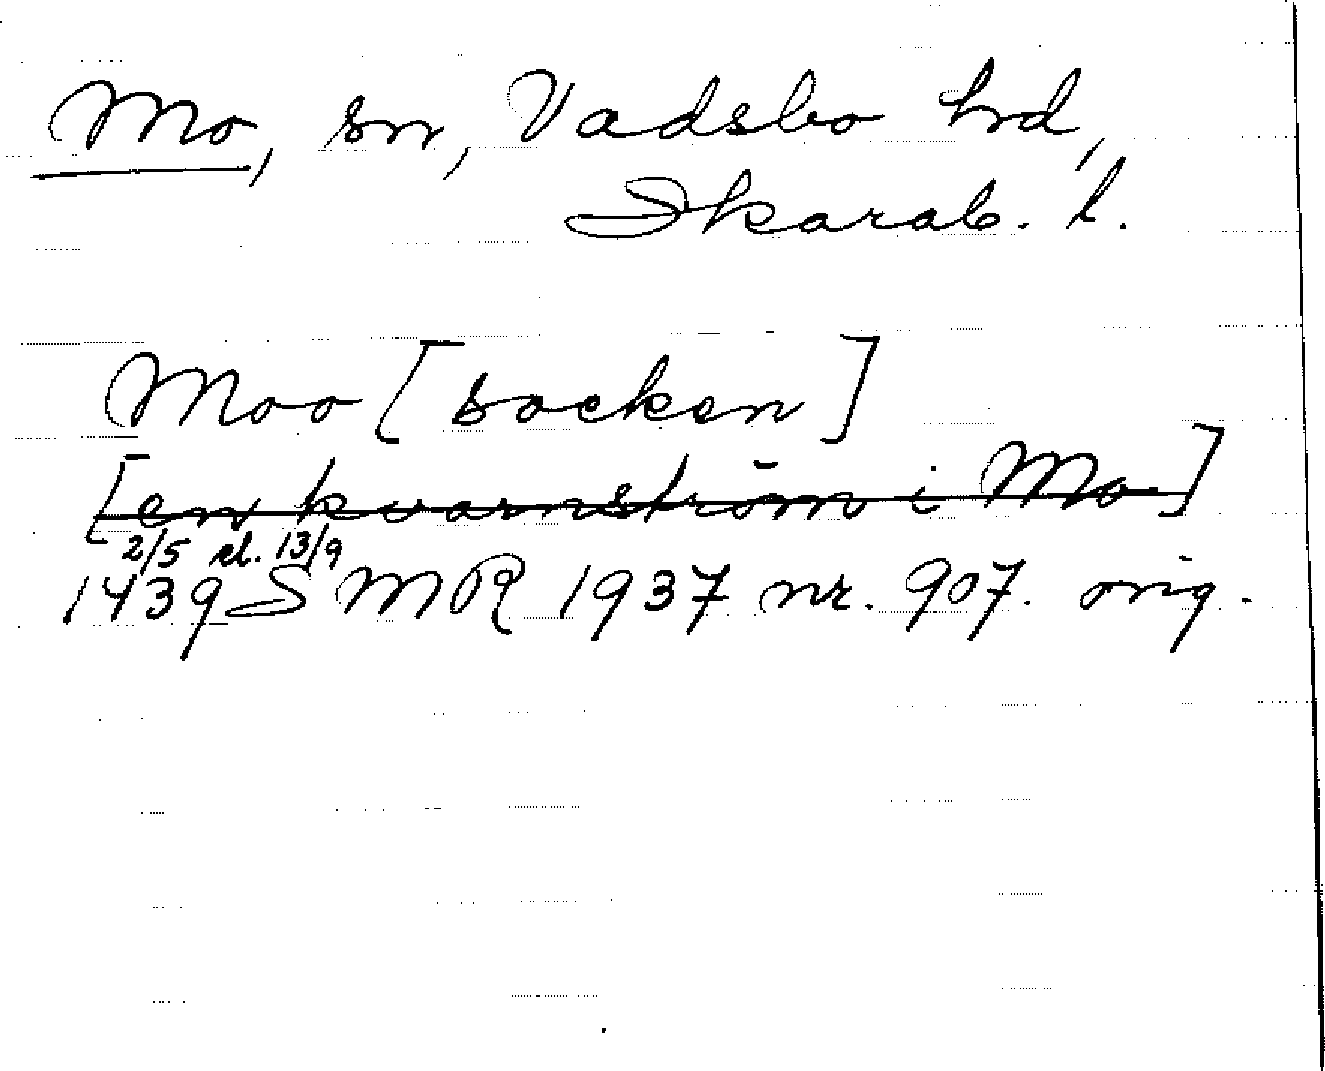 Mo, sn, Vadsbo hd,
Skarab. l.
Moo [socken]
[en kvarnström i Mo]
2/5 el. 13/9
1439 SMR 1937 nr. 907. orig.